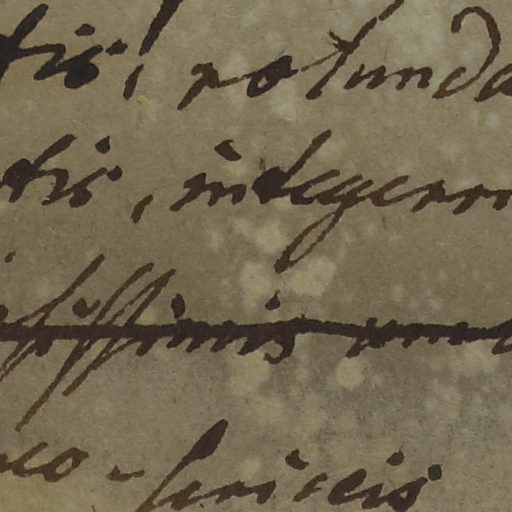 tis, rotunda
tis, integerri
issimis
co-sericeis